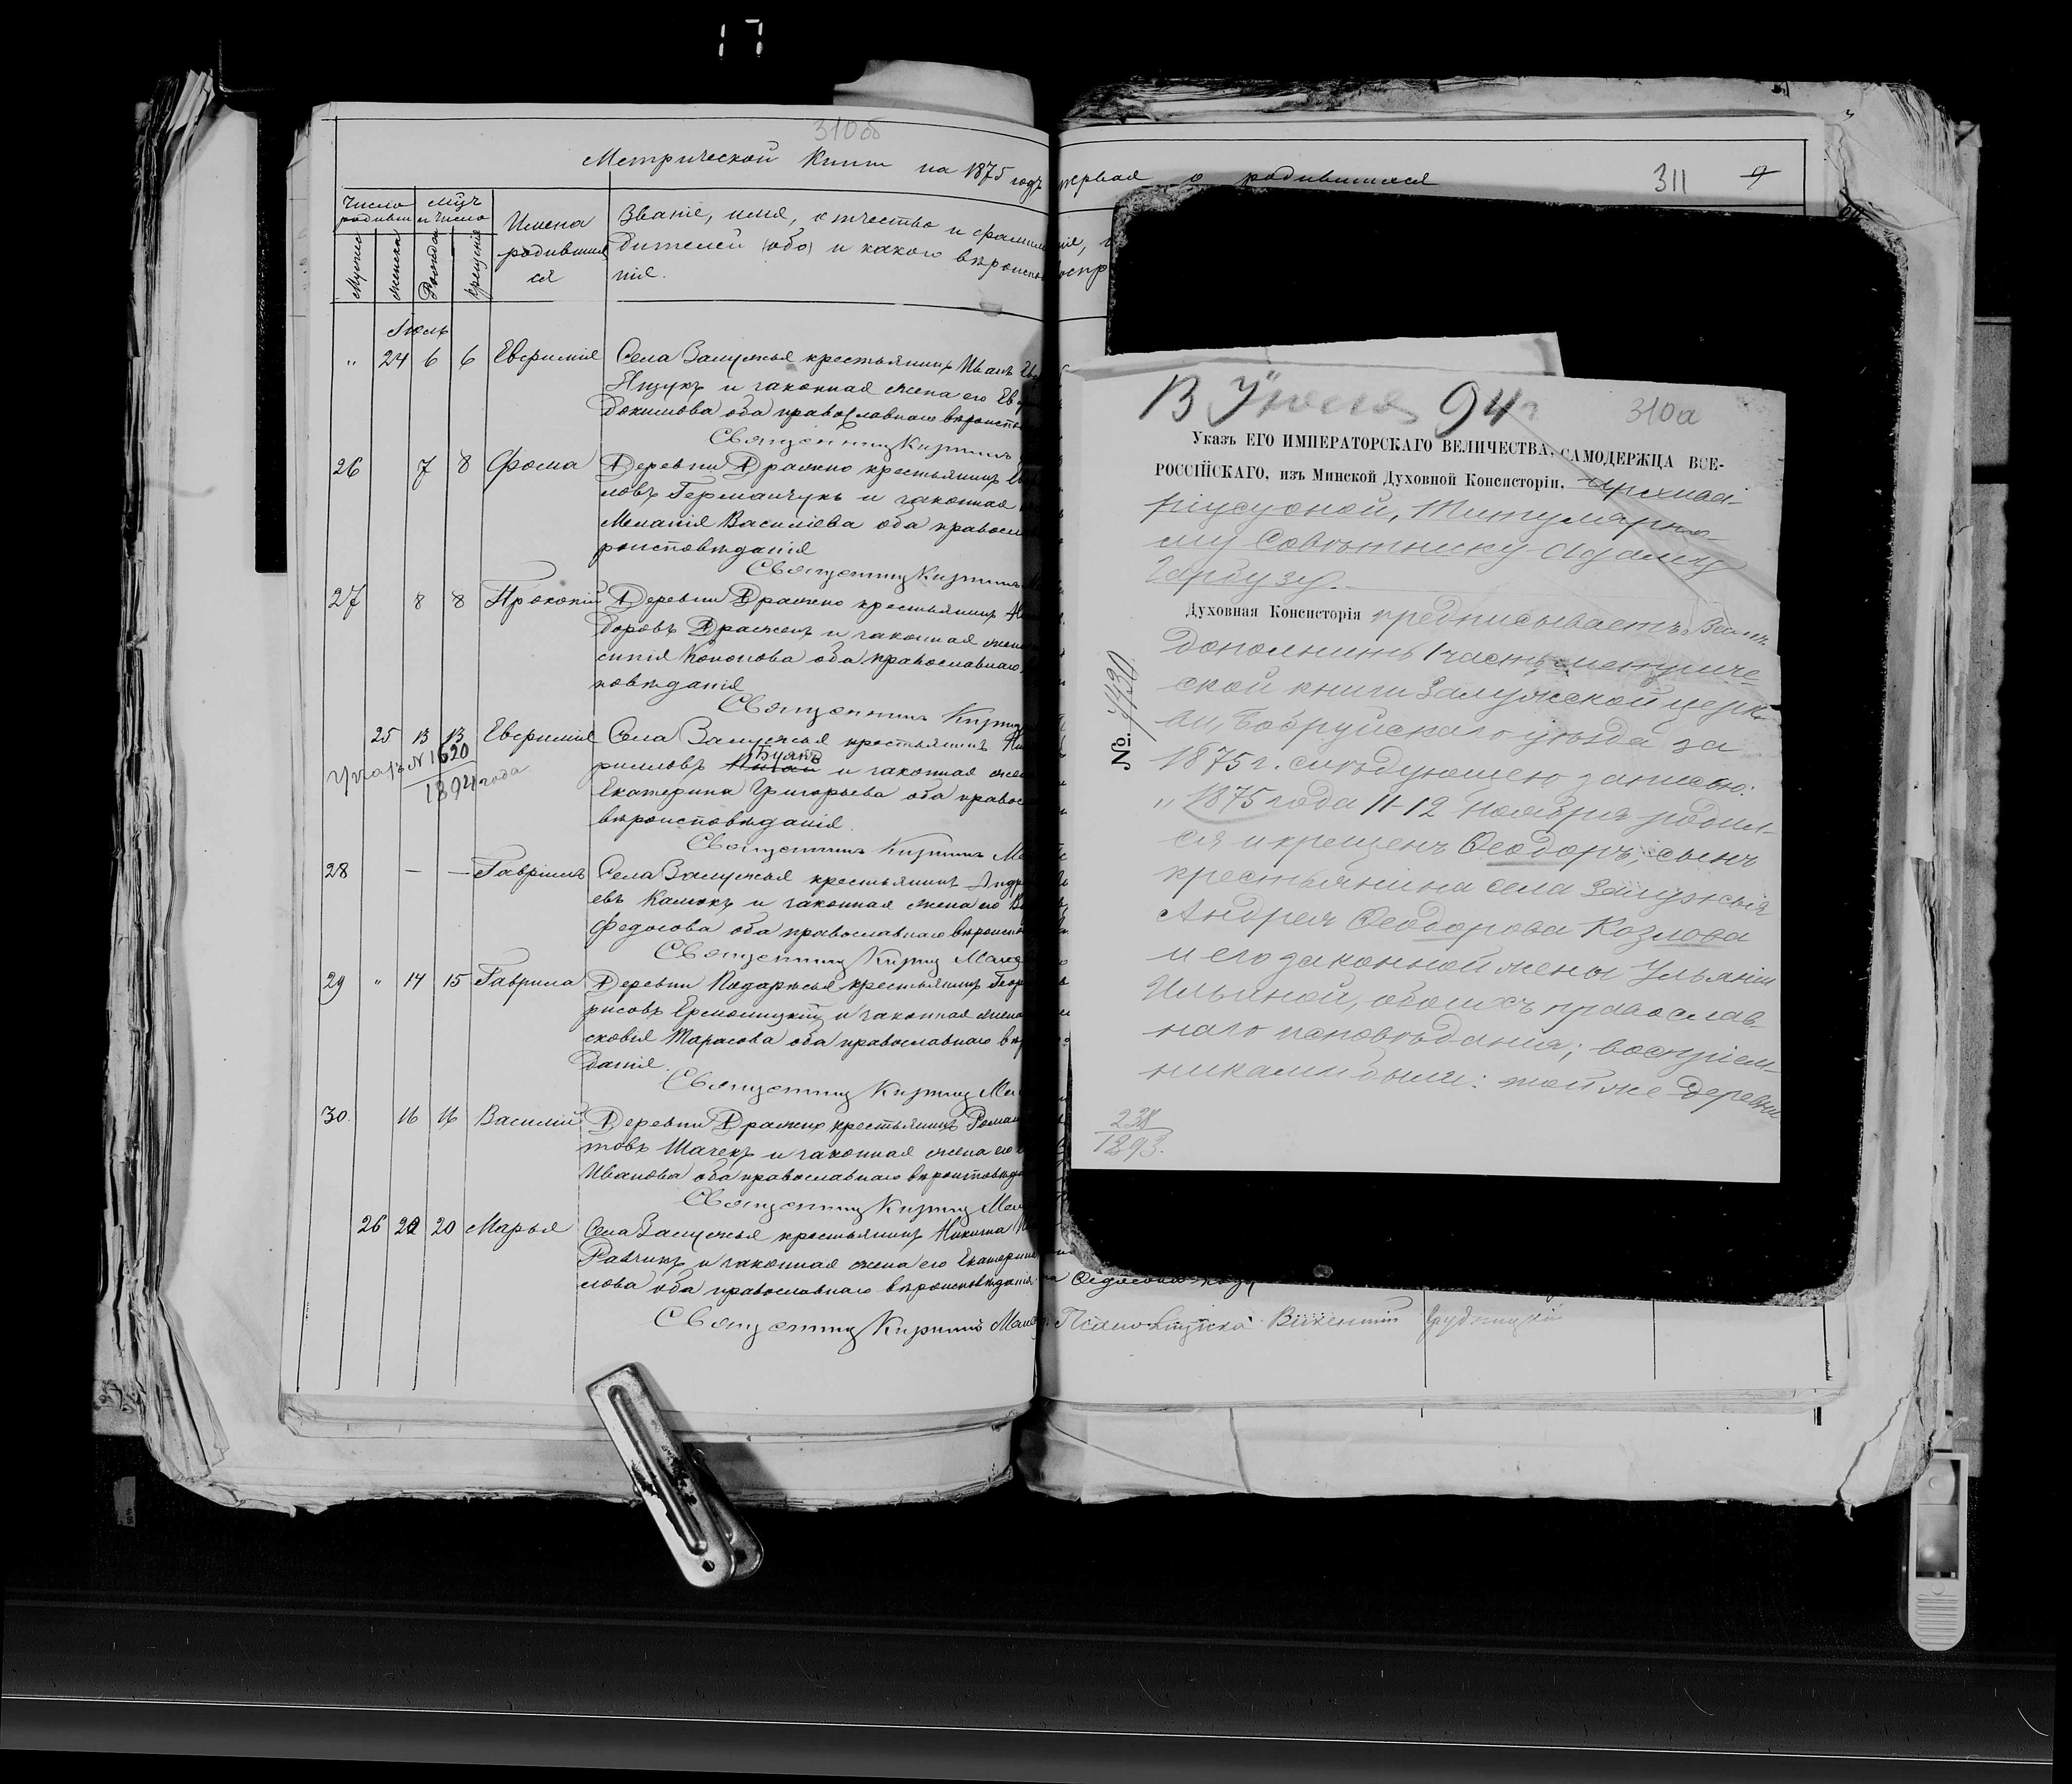 17
310об
Метрической Книги на 1875 годъ первая о родившихся
311
Число родивш
Мѣсяц и число
Имена родившихся
Званіе, имя, отчество и фамилія,
дителей (оба) и какого вѣроиспо
нія.
Мужес
женска
Рожден
крещенія
Іюль
" 24 6 6 Евфимія Села Залужья крестьянинъ Иванъ
Ящукъ и законная жена его Ев
докимова оба православнаго вѣроиспо
Священникъ Кириллъ
26 7 8 Фома Деревни Дражно крестьянинъ
ловъ Германчукъ и законная
Меланія Василіева оба правосл
роисповѣданія
Священникъ Кириллъ
27 8 8 Прокопій Деревни Дражно крестьянинъ
доровъ Дражен и законная жен
Кононова оба православнаго
повѣданія
Священникъ Кирил
25 13 13 Евфимія Села Залужья крестьянинъ
Указъ № 1620
1894 года
рилловъ Буятъ и законная жен
Екатерина Григорьева оба правос
вѣроисповѣданія.
Священникъ Кириллъ Ма
28 — — Гавріилъ Села Залужья крестьянинъ Андр
евъ Камокъ и законная жена его
Федосова оба православнаго вѣроиспо
Священникъ Кирилъ
29 " 14 15 Гаврила Деревни Подарѣсья крестьянинъ Геор
рисовъ Ермолицкій и законная жена
сковія Тарасова оба православнаго вѣр
данія.
Священникъ Кирилъ
30. 16 16 Василій Деревни Дражно крестьянинъ Роман
товъ Шачекъ и законная жена его
Иванова оба православнаго вѣроисповѣд
Священникъ Кирилъ
26 20 20 Марья Села Залужья крестьянинъ Никита
Равчикъ и законная жена его Екатерина
лова оба православнаго вѣроисповѣданія
Священникъ Кириллъ
Викентій Грудницкій
13 Іюля 94 г
310а
Указъ ЕГО ИМПЕРАТОРСКАГО ВЕЛИЧЕСТВА, САМОДЕРЖЦА ВСЕ-
РОССІЙСКАГО, изъ Минской Духовной Консисторіи, Архива
ріусу оной, Титулярно-
му Совѣтнику Адаму
Гарбузу.
Духовная Консисторія предписываетъ Вамъ
дополнить 1 часть метриче-
ской книги Залужской церк-
ви, Бобруйскаго уѣзда за
1875 г. слѣдующею записью:
„1875 года 11-12 Ноября родил-
ся и крещенъ Ѳеодоръ, сынъ
крестьянина села Залужья
Андрея Ѳеодорова Козлова
и его законной жены Ульяніи
Ильиной, обоихъ православ-
наго исповѣданія; воспріем-
никами были: той же деревни
№
238
1893.